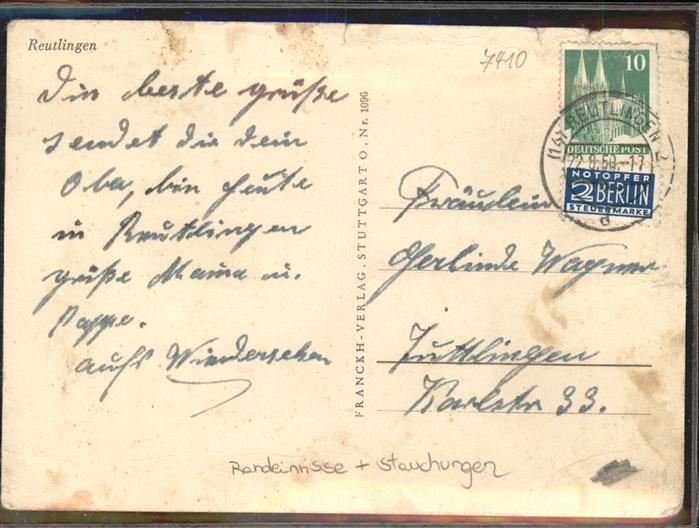 Reutlingen
7410
10
DEUTSCHE POST
(14) REUTLINGEN 2
22.8.50.-17
d
NOTOPFER
2 BERLIN
STEUERMARKE
Die beste grüße
sendet dir dein
Oba, bin heute
in Reutlingen
grüße Mama u.
Pappe.
aufs Wiedersehen
FRANCKH-VERLAG, STUTTGART O. Nr. 1096
Fräulein
Gerlinde Wagner
Tuttlingen
Karlstr 33.
Randeinrisse + Stauchungen